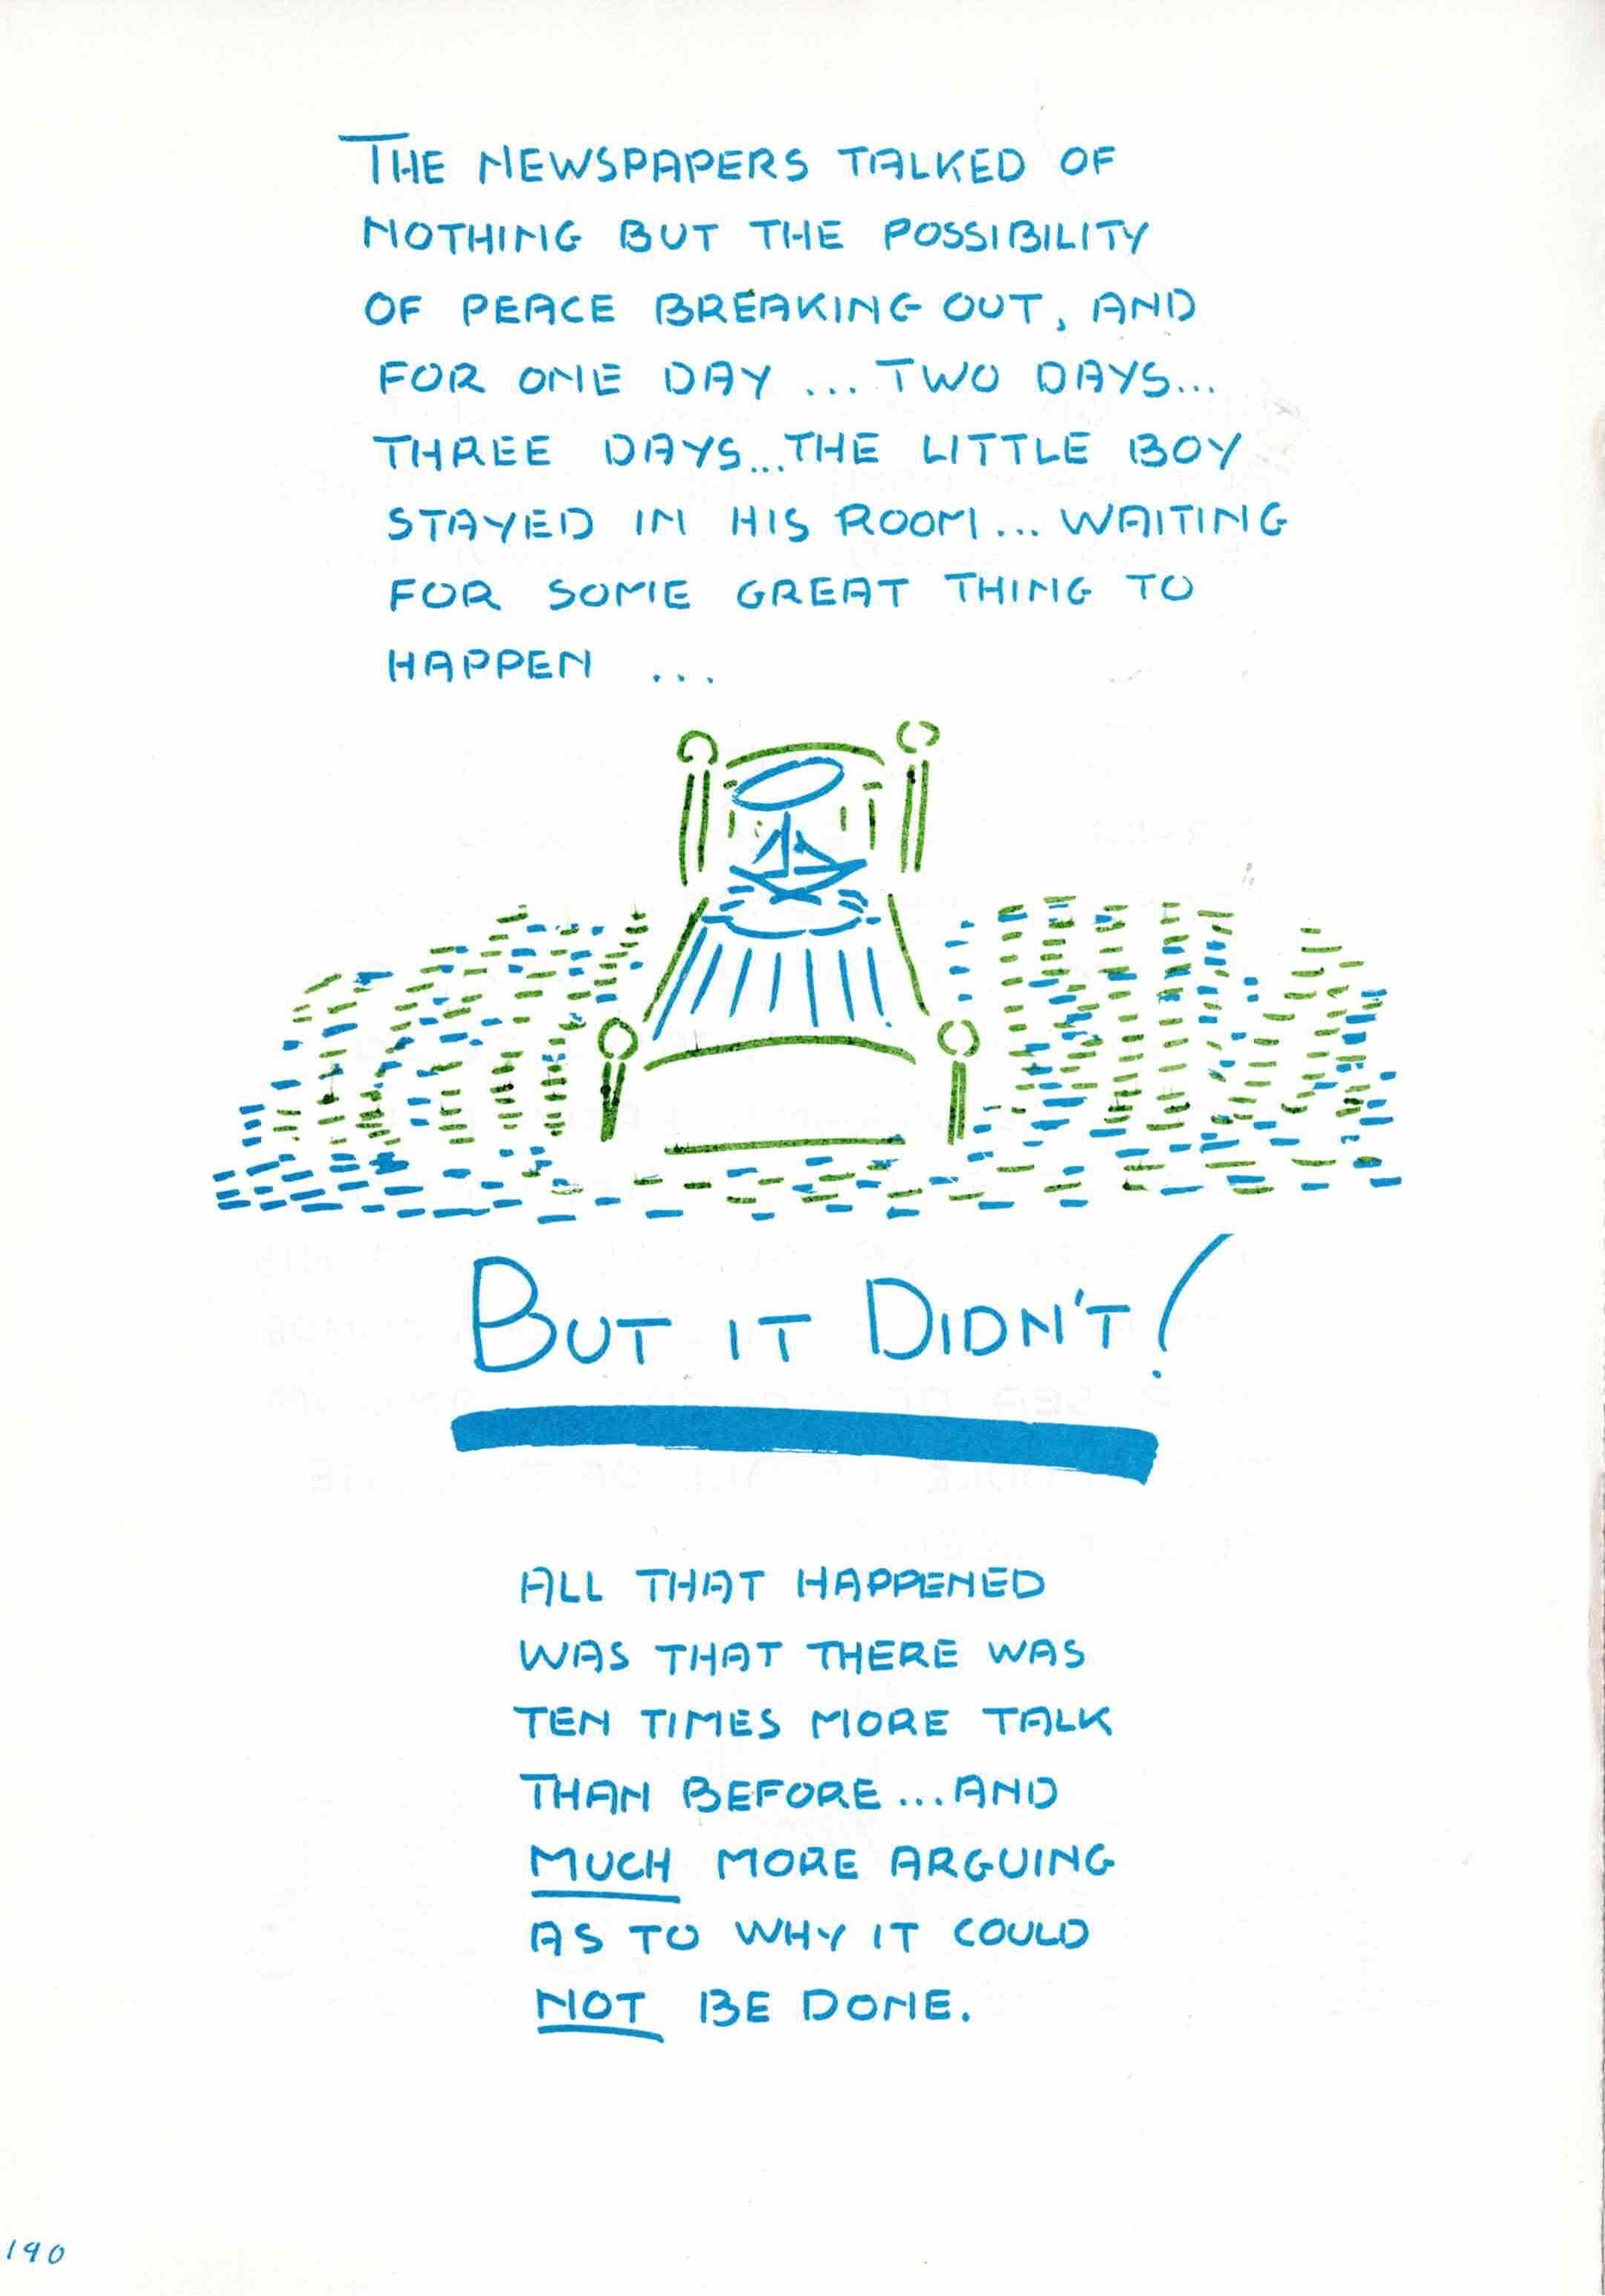 THE NEWSPAPERS TALKED OF
NOTHING BUT THE POSSIBILITY
OF PEACE BREAKING OUT, AND
FOR ONE DAY ... TWO DAYS...
THREE DAYS...THE LITTLE BOY
STAYED IN HIS ROOM... WAITING
FOR SOME GREAT THING TO
HAPPEN ...
BUT IT DIDN'T!
ALL THAT HAPPENED
WAS THAT THERE WAS
TEN TIMES MORE TALK
THAN BEFORE...AND
MUCH MORE ARGUING
AS TO WHY IT COULD
NOT BE DONE.
190